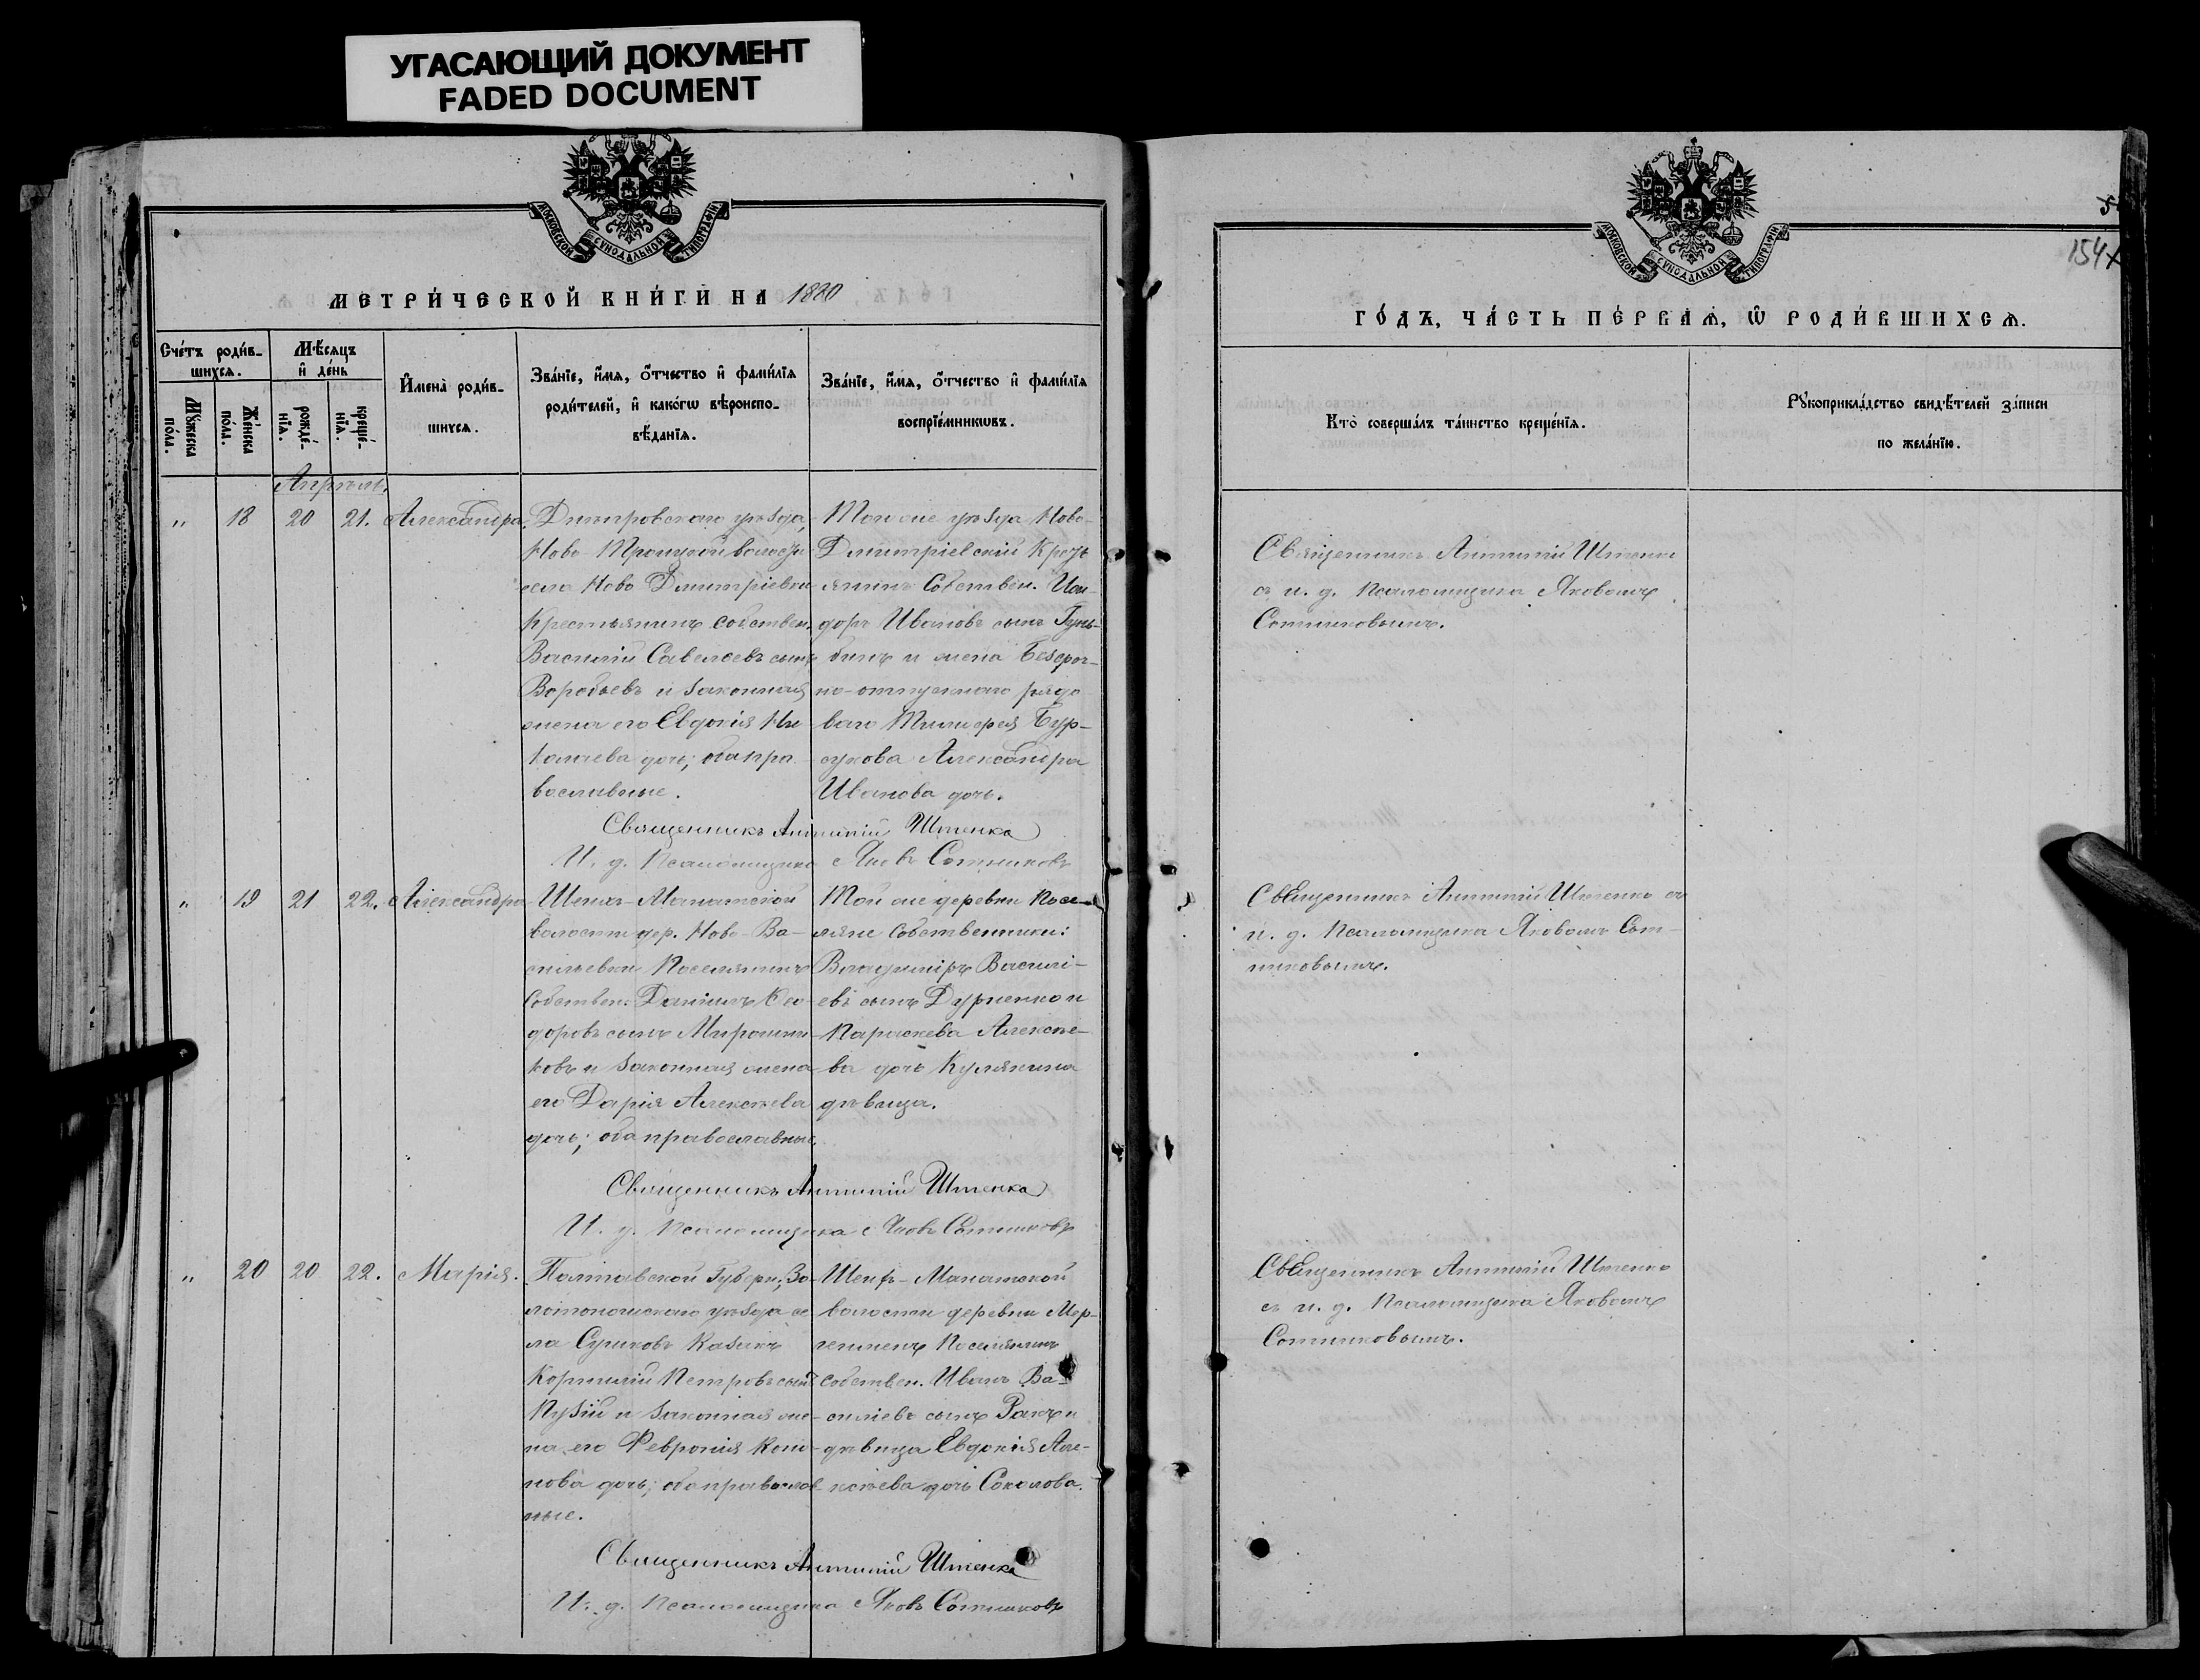 УГАСАЮЩИЙ ДОКУМЕНТ
FADED DOCUMENT
МОСКОВСКОЙ СУНОДАЛЬНОЙ ТИПОГРАФІИ
МЕТРИ́ЧЕСКОЙ КНИ́ГИ НА 1880
Сче́тъ роди́в-
шихсѧ.
Мѣ́сѧцъ
и҆ де́нь
Мꙋ́жеска
по́ла.
Же́нска
по́ла.
рожде́-
нїѧ.
креще́-
нїѧ.
И҆мена̀ роди́в-
шихсѧ.
Зва́нїе, и҆́мѧ, ѻ҆́тчество и҆ фами́лїѧ
роди́телей, и҆ како́гѡ вѣроиспо-
вѣ́данїѧ.
Зва́нїе, и҆́мѧ, ѻ҆́тчество и҆ фами́лїѧ
воспрїе́мникѡвъ.
Апрѣль.
„ 18 20 21. Александра
Днепровскаго уѣзда,
Ново-Троицкой волости
села Ново Дмитріевки
Крестьянинъ собствен.
Василій Савелоевъ сынъ
Воробьевъ и законная
жена его Евдокія Ни-
колаева дочь; оба пра-
вославные.
Того же уѣзда Ново-
Дмитріевскій Кресть-
янинъ Собствен. Иси-
доръ Ивановъ сынъ
и жена Безсроч-
но-отпускнаго рядо-
ваго Тимофея Бур-
сукова Александра
Иванова дочь.
Священникъ Антиній Штенка
И. д. Псаломщика Яковъ Сотниковъ
„ 19 21 22. Александра
волости дер. Ново-Ва-
сильевки Поселянинъ
Собствен. Даніилъ Ѳео-
доровъ сынъ Мирошни-
ковъ и законная жена
его Дарія Алексѣева
дочь; оба православные.
Той же деревни Посе-
ляне Собственники:
Владиміръ Василі-
евъ сынъ Дурненко и
Параскева Алексѣе-
ва дочь Кулякина
дѣвица.
Священникъ Антиній Штенка
И. д. Псаломщика Яковъ Сотниковъ
„ 20 20 22. Марія.
Полтавской Губерн., Зо-
лотоношскаго уѣзда се-
ла Сушковъ Казакъ
Корнилій Петровъ сынъ
Пузій и законная же-
на его Февронія Коно-
нова дочь; оба православ-
ные.
волости деревни Мер-
Поселянинъ
собствен. Иванъ Ва-
сильевъ сынъ Ракъ и
дѣвица Евдокія Але-
ксѣева дочь Соколова.
Священникъ Антиній Штенка
И. д. Псаломщика Яковъ Сотниковъ
МОСКОВСКОЙ СУНОДАЛЬНОЙ ТИПОГРАФІИ
154
ГО́ДЪ, ЧА́СТЬ ПЕ́РВАѦ, Ѡ҆ РОДИ́ВШИХСѦ.
Кто̀ соверша́лъ та́инство креще́нїѧ.
Рꙋкоприкла́дство свидѣ́телей за́писи
по жела́нїю.
Священникъ Антиній Штенко
съ и. д. Псаломщика Яковомъ
Сотниковымъ.
Священникъ Антиній Штенко съ
и. д. Псаломщика Яковомъ Сот-
никовымъ.
Священникъ Антиній Штенко
съ и. д. Псаломщика Яковомъ
Сотниковымъ.